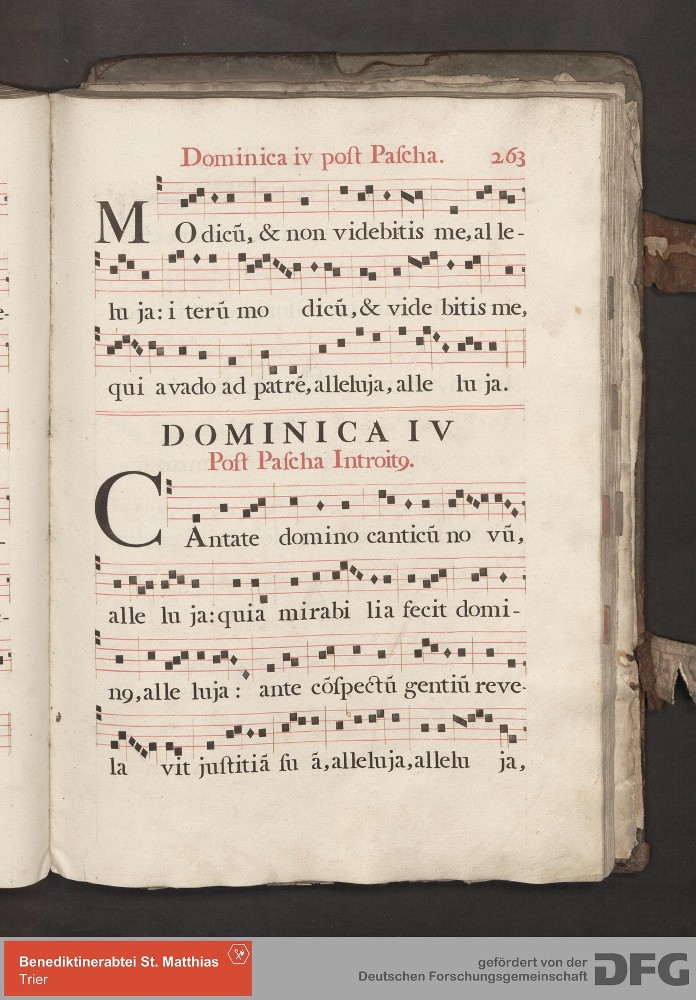 Dominica iv poſt Paſcha. 263
MO dicū, & non videbitis me, al le-
lu ja: i terū mo dicū, & vide bitis me,
qui a vado ad patrē, alleluja, alle lu ja.
DOMINICA IV
Poſt Paſcha Introitꝯ.
CAntate domino canticū no vū,
alle lu ja: quia mirabi lia fecit domi-
nꝯ, alle luja: ante cōſpectū gentiū reve-
la vit juſtitiā ſu ā, alleluja, allelu ja,
Benediktinerabtei St. Matthias
Trier
gefördert von der
Deutschen Forschungsgemeinschaft
DFG